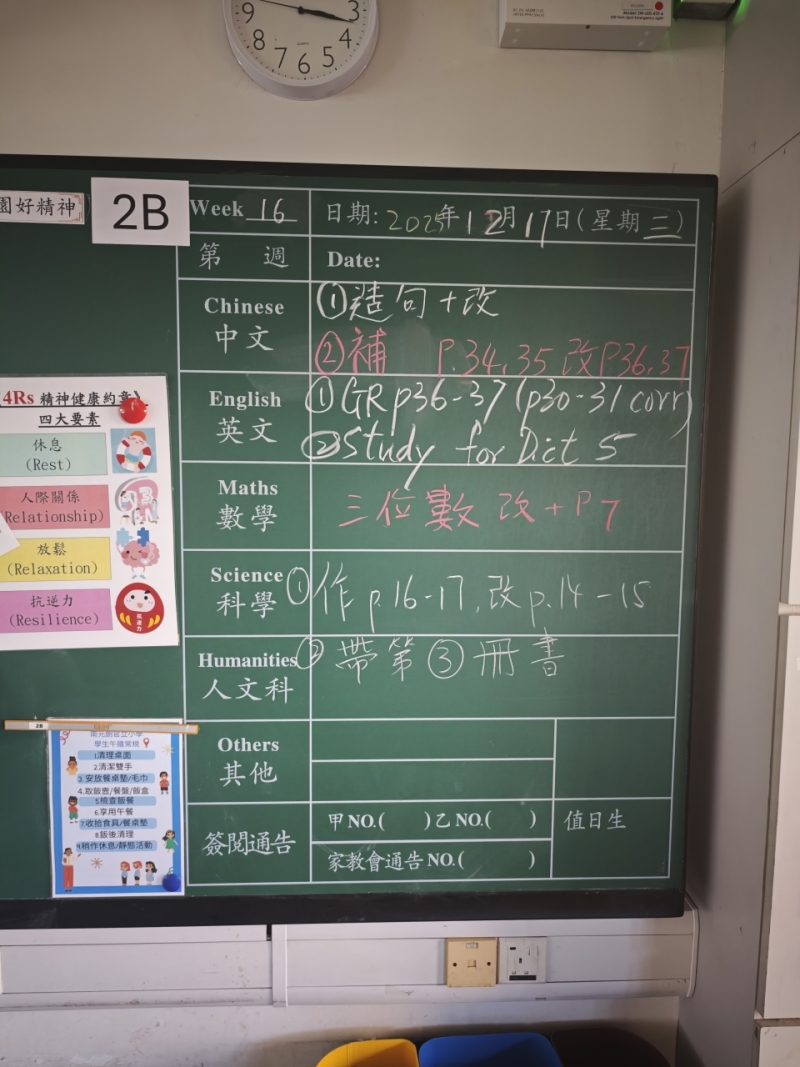 3
9
4
8
5
7
6
QUARTZ
園好精神
2B
Week 16
日期: 2025年12月17日(星期三)
第 週
Date:
Chinese
中文
①造句+改
②補 P.34,35 改P36,37
English
英文
①GR p36-37 (p30-31 corr)
②Study for Dict 5
Maths
數學
三位數 改+P7
Science
科學
①作 p.16-17,改p.14-15
Humanities
人文科
②帶第③冊書
Others
其他
簽閱通告
甲NO.( )乙NO.( )
值日生
家教會通告NO.( )
4Rs 精神健康約章
四大要素
休息
(Rest)
人際關係
Relationship)
放鬆
(Relaxation)
抗逆力
(Resilience)
2B
學生午膳常規
1清理桌面
2.清潔雙手
3.安放餐桌墊/毛巾
4.取飯壺/餐盤/飯盒
5檢查飯餐
6.享用午餐
7收拾食具/餐桌墊
8飯後清理
9稍作休息/靜態活動